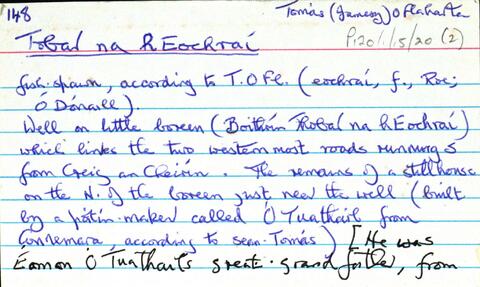 148
Tomás (Jamesy) Ó Flaharta
P120/1/5/20 (2)
Tobar na hEochraí
fish-spawn, according to T.O Fl. (eochraí, f., Roe;
Ó Dónaill).
Well on little boreen (Boithrín Thobar na hEochraí)
which links the two westernmost roads running S
from Creig an Cheirín. The remains of a stillhouse
on the N. of the boreen just near the well (built
by a poitín-maker called Ó Tuathail from
Connemara, according to sean-Tomás) [He was
Éamon Ó Tuathail's great-grandfather, from